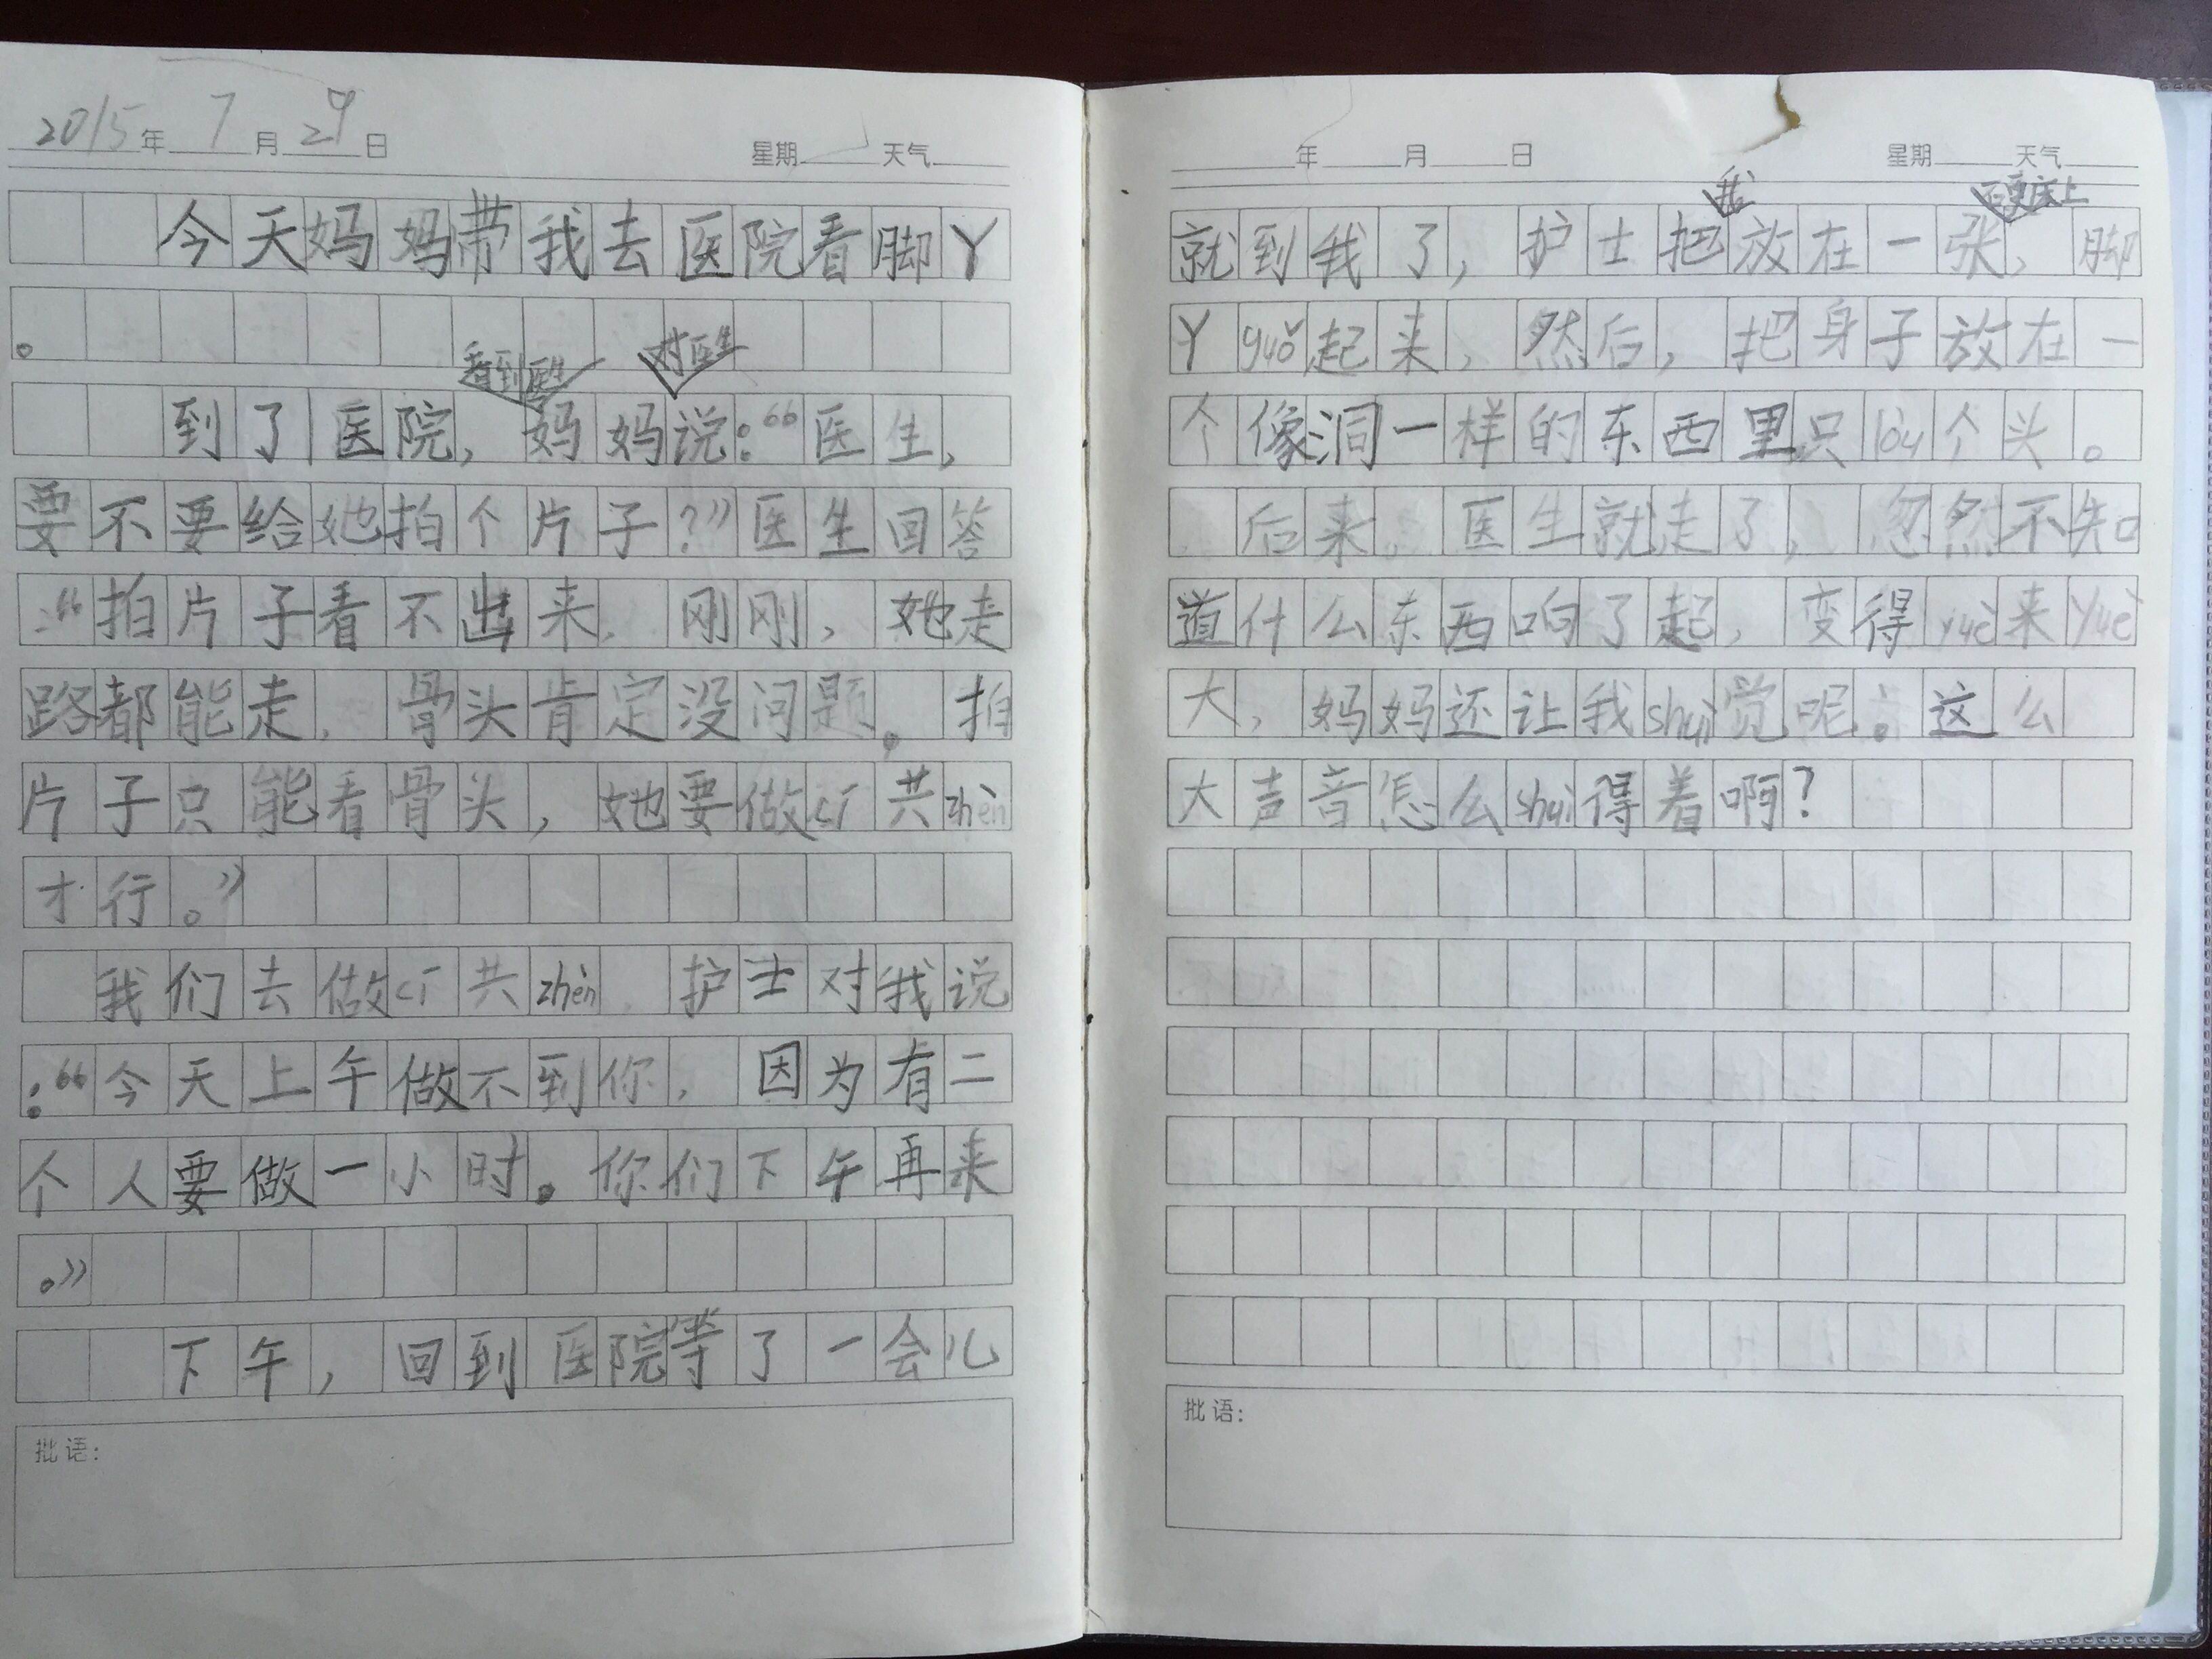 2015年 7月 29日 星期 天气
今天妈妈带我去医院看脚丫
。
看到医生 对医生
到了医院，妈妈说：“医生，
要不要给她拍个片子？”医生回答
：“拍片子看不出来，刚刚，她走
路都能走，骨头肯定没问题。拍
片子只能看骨头，她要做CT共zhèn
才行。”
我们去做CT共zhèn，护士对我说
：“今天上午做不到你，因为有二
个人要做一小时。你们下午再来
。”
下午，回到医院等了一会儿
批语：
年 月 日 星期 天气
我 硬床上
就到我了，护士把放在一张，脚
丫guǒ起来，然后，把身子放在一
个像洞一样的东西里只lòu个头。
后来，医生就走了，忽然不知
道什么东西响了起，变得yuè来yuè
大，妈妈还让我shuì觉呢。这么
大声音怎么shuì得着啊？
批语：